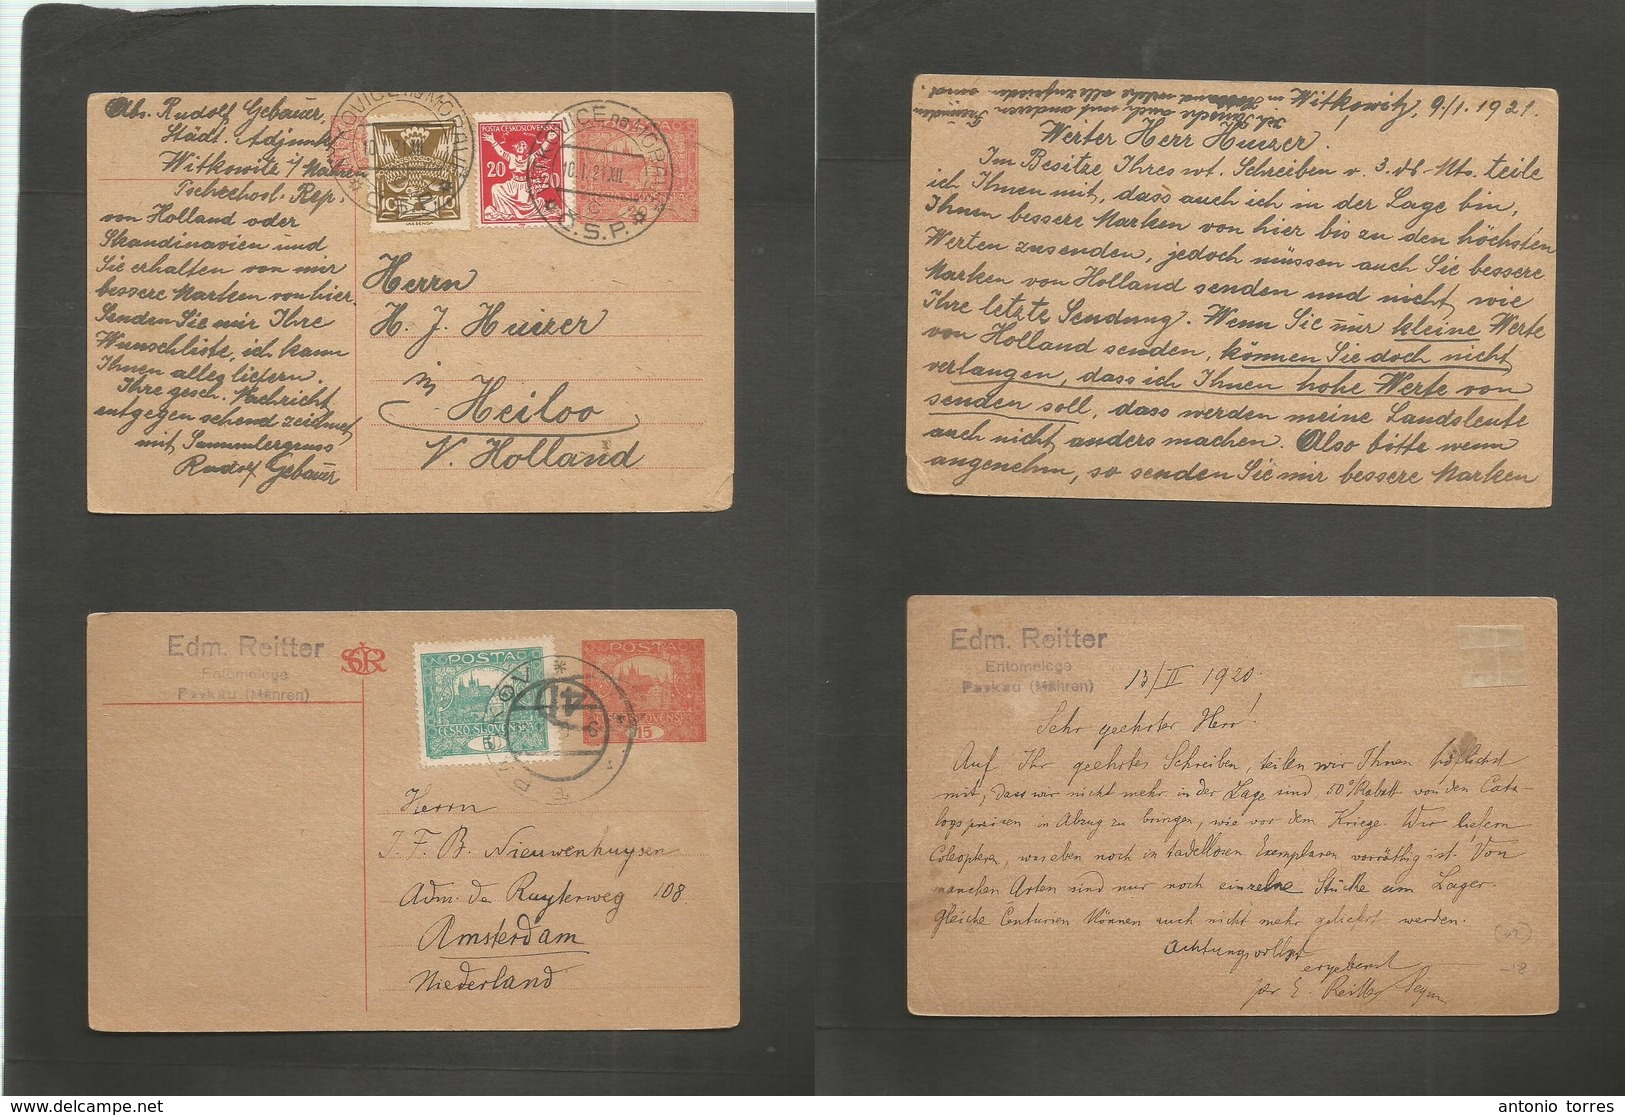 Abs. Rudolf Gebauer,
Städt. Adjunkt
Witkowitz i/ Mähren
Tschechosl. Rep.
von Holland oder
Skandinavien und
Sie erhalten von mir
bessere Marken von hier.
Senden Sie mir Ihre
Wunschliste, ich kann
Ihnen alles liefern.
Ihre gesch. Nachricht
entgegen sehend zeichnet
mit Sammlergruss
Rudolf Gebauer
VÍTKOVICE na MORAVĚ
10 10
POSTA ČESKOSLOVENSKÁ
20 20
10.I.21.XII
Č.S.P.
Herrn
H. J. Huizer
in Heiloo
N. Holland
Witkowitz, 9/I. 1921.
Ich tausche auch mit anderen
Freunden in Holland welche
Werter Herr Huizer!
Im Besitze Ihres wt. Schreiben v. 3. ds. Mts. teile
ich Ihnen mit, dass auch ich in der Lage bin,
Ihnen bessere Marken von hier bis zu den höchsten
Werten zusenden, jedoch müssen auch Sie bessere
Marken von Holland senden und nicht, wie
Ihre letzte Sendung. Wenn Sie nur kleine Werte
von Holland senden, können Sie doch nicht
verlangen, dass ich Ihnen hohe Werte von
senden soll, dass werden meine Landsleute
auch nicht anders machen. Also bitte wenn
angenehm, so senden Sie mir bessere Marken
Edm. Reitter
Entomologe
Paskau (Mähren)
POSTA
ČESKO-SLOVENSKÁ
5
POSTA
15
Herrn
J. F. B. Nieuwenhuysen
Adm. de Ruyterweg 108
Amsterdam
Niederland
Edm. Reitter
Entomologe
Paskau (Mähren)
13/II 1920.
Sehr geehrter Herr!
Auf Ihr geehrtes Schreiben, teilen wir Ihnen höflichst
mit, dass wir nicht mehr in der Lage sind, 50% Rabatt von den Cata-
logspreisen in Abzug zu bringen, wie vor dem Kriege. Wir liefern
Coleoptera, was eben noch in tadellosen Exemplaren vorräthig ist. Von
manchen Arten sind nur noch einzelne Stücke am Lager.
Gleiche Centurien können auch nicht mehr geliefert werden.
Achtungsvollst
ergebenst
per E. Reitter
antonio torres